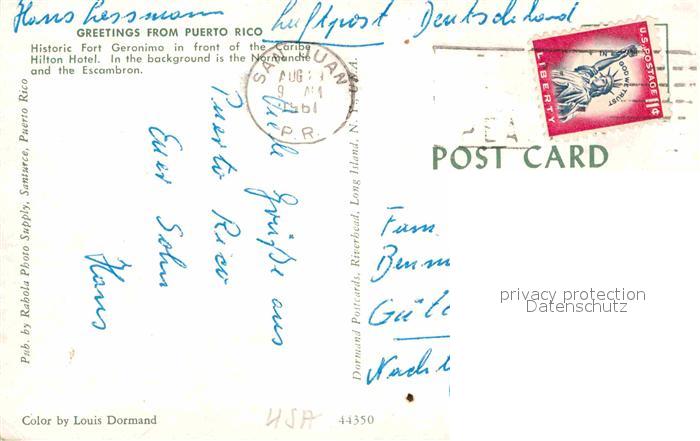 Hans Lessmann Luftpost Deutschland
GREETINGS FROM PUERTO RICO
Historic Fort Geronimo in front of the Caribe
Hilton Hotel. In the background is the Normandie
and the Escambron.
SAN JUAN
AUG
9 AM
1961
P.R.
U.S. POSTAGE 11¢
LIBERTY
IN GOD WE TRUST
POST CARD
Viele Grüße aus
Puerto Rico
Euer Sohn
Hans
Pub. by Rabola Photo Supply, Santurce, Puerto Rico
Dormand Postcards, Riverhead, Long Island, N. Y., U.S.A.
Fam
Güte
Nacht
privacy protection
Datenschutz
Color by Louis Dormand
USA
44350